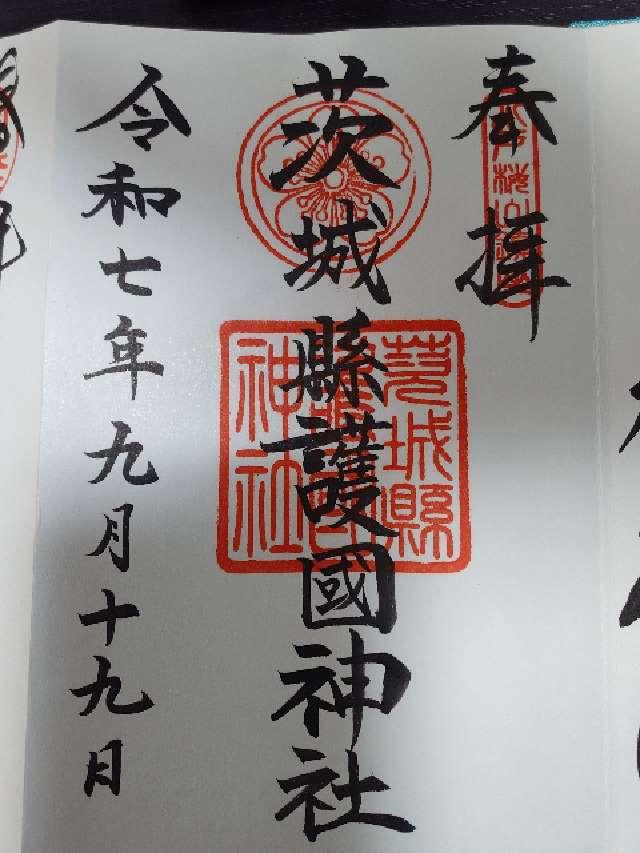 奉拝
茨城縣護國神社
茨城縣護國神社
令和七年九月十九日